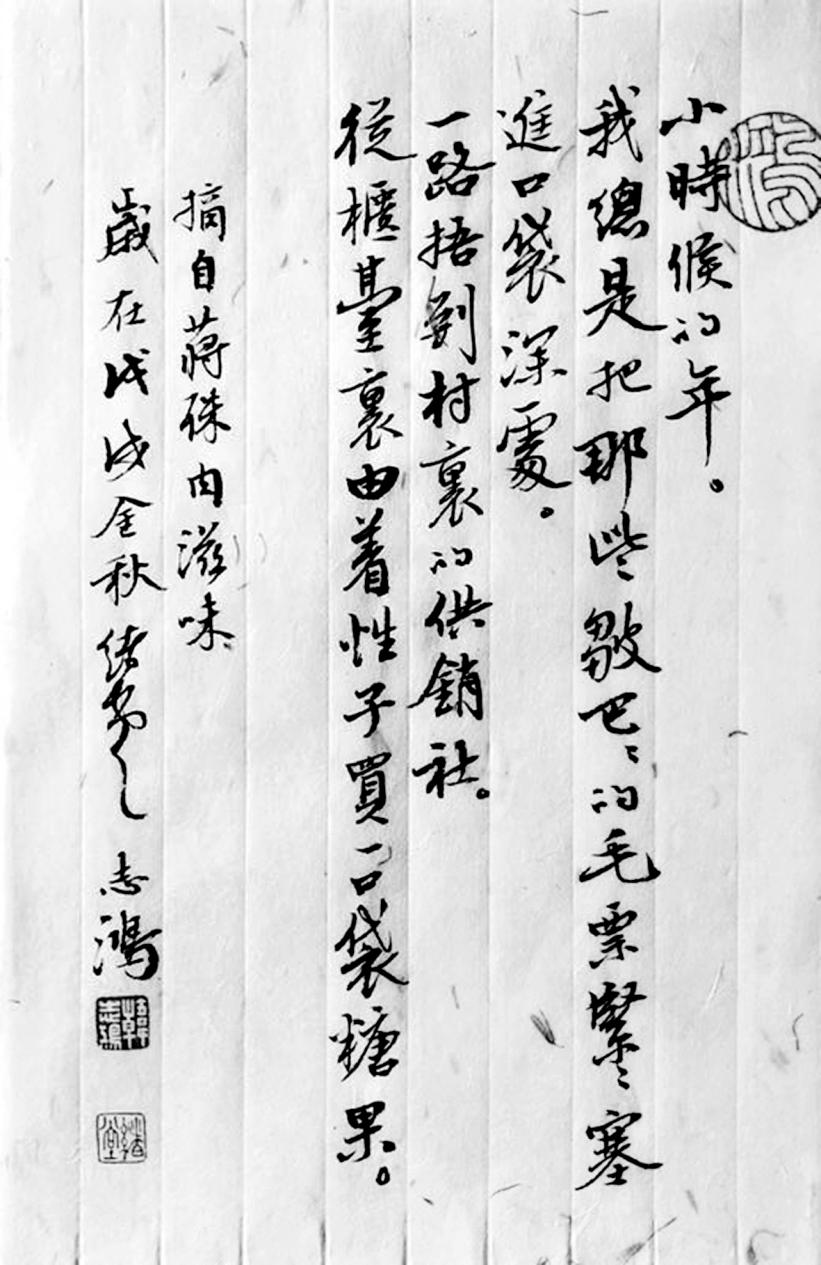 小時候的年。
我總是把那些皺巴〻的毛票緊〻塞
進口袋深處。
一路捂到村裏的供銷社。
從櫃臺裏由着性子買一口袋糖果。
摘自蔣殊内滋味
歲在戊戌金秋 志鴻
韓志鴻